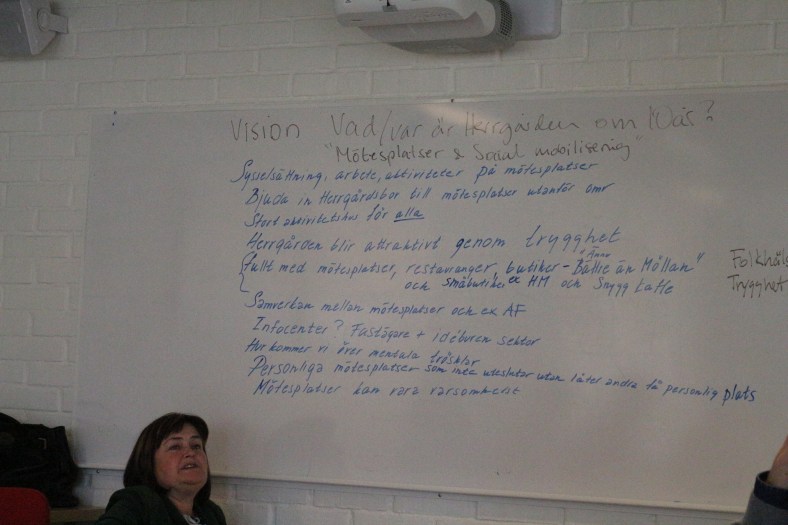 Vision Vad/var är Herrgården om 10 år?
"Mötesplatser & Social mobilisering"
Sysselsättning, arbete, aktiviteter på mötesplatser
Bjuda in Herrgårdsbor till mötesplatser utanför omr
Stort aktivitetshus för alla
Herrgården blir attraktivt genom trygghet
Fullt med mötesplatser, restauranger, butiker - "Ännu Bättre än Möllan"
och småbutiker ex HM och Snygg Kaffe
Samverkan mellan mötesplatser och ex AF
Infocenter? Fastägare + idéburen sektor
Hur kommer vi över mentala trösklar
Personliga mötesplatser som inte utesluter utan låter andra få personlig plats
Mötesplatser kan vara varsomhelst
Folkhäls
Trygghet